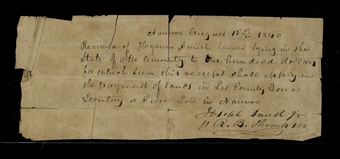 Nauvoo August 15th 1840
Received of Hyrum Smith lands lying in the
State of amounting to one hundred dollars
for which sum this receipt shall apply in
the payment of lands in Lee County Iowa
Territory or Town Lots in Nauvoo
Joseph Smith Jr
p R. B. Thompson